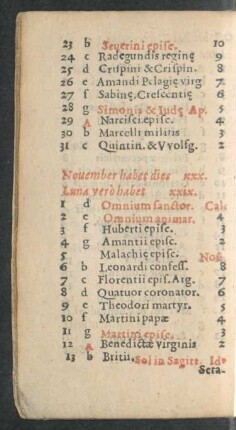 23 b Seuerini episc. 10
24 c Radegundis reginę 9
25 d Crispini & Crispin. 8
26 e Amandi Pelagię virg 7
27 f Sabinę, Crescentię 6
28 g Simonis & Iudę Ap. 5
29 A Narcisci episc. 4
30 b Marcelli militis 3
31 c Quintin. & Vvolfg. 2
Nouember habet dies xxx.
Luna verò habet xxix.
1 d Omnium sanctor. Cal
2 e Omnium animar. 4
3 f Huberti episc. 3
4 g Amantii episc. 2
5 Malachię episc. Non.
6 b Leonardi confess. 8
7 c Florentii epis. Arg. 7
8 d Quatuor coronator. 6
9 e Theodori martyr. 5
10 f Martini papæ 4
11 g Martini episc. 3
12 A Benedictæ virginis 2
13 b Britii. Sol in Sagitt. Id